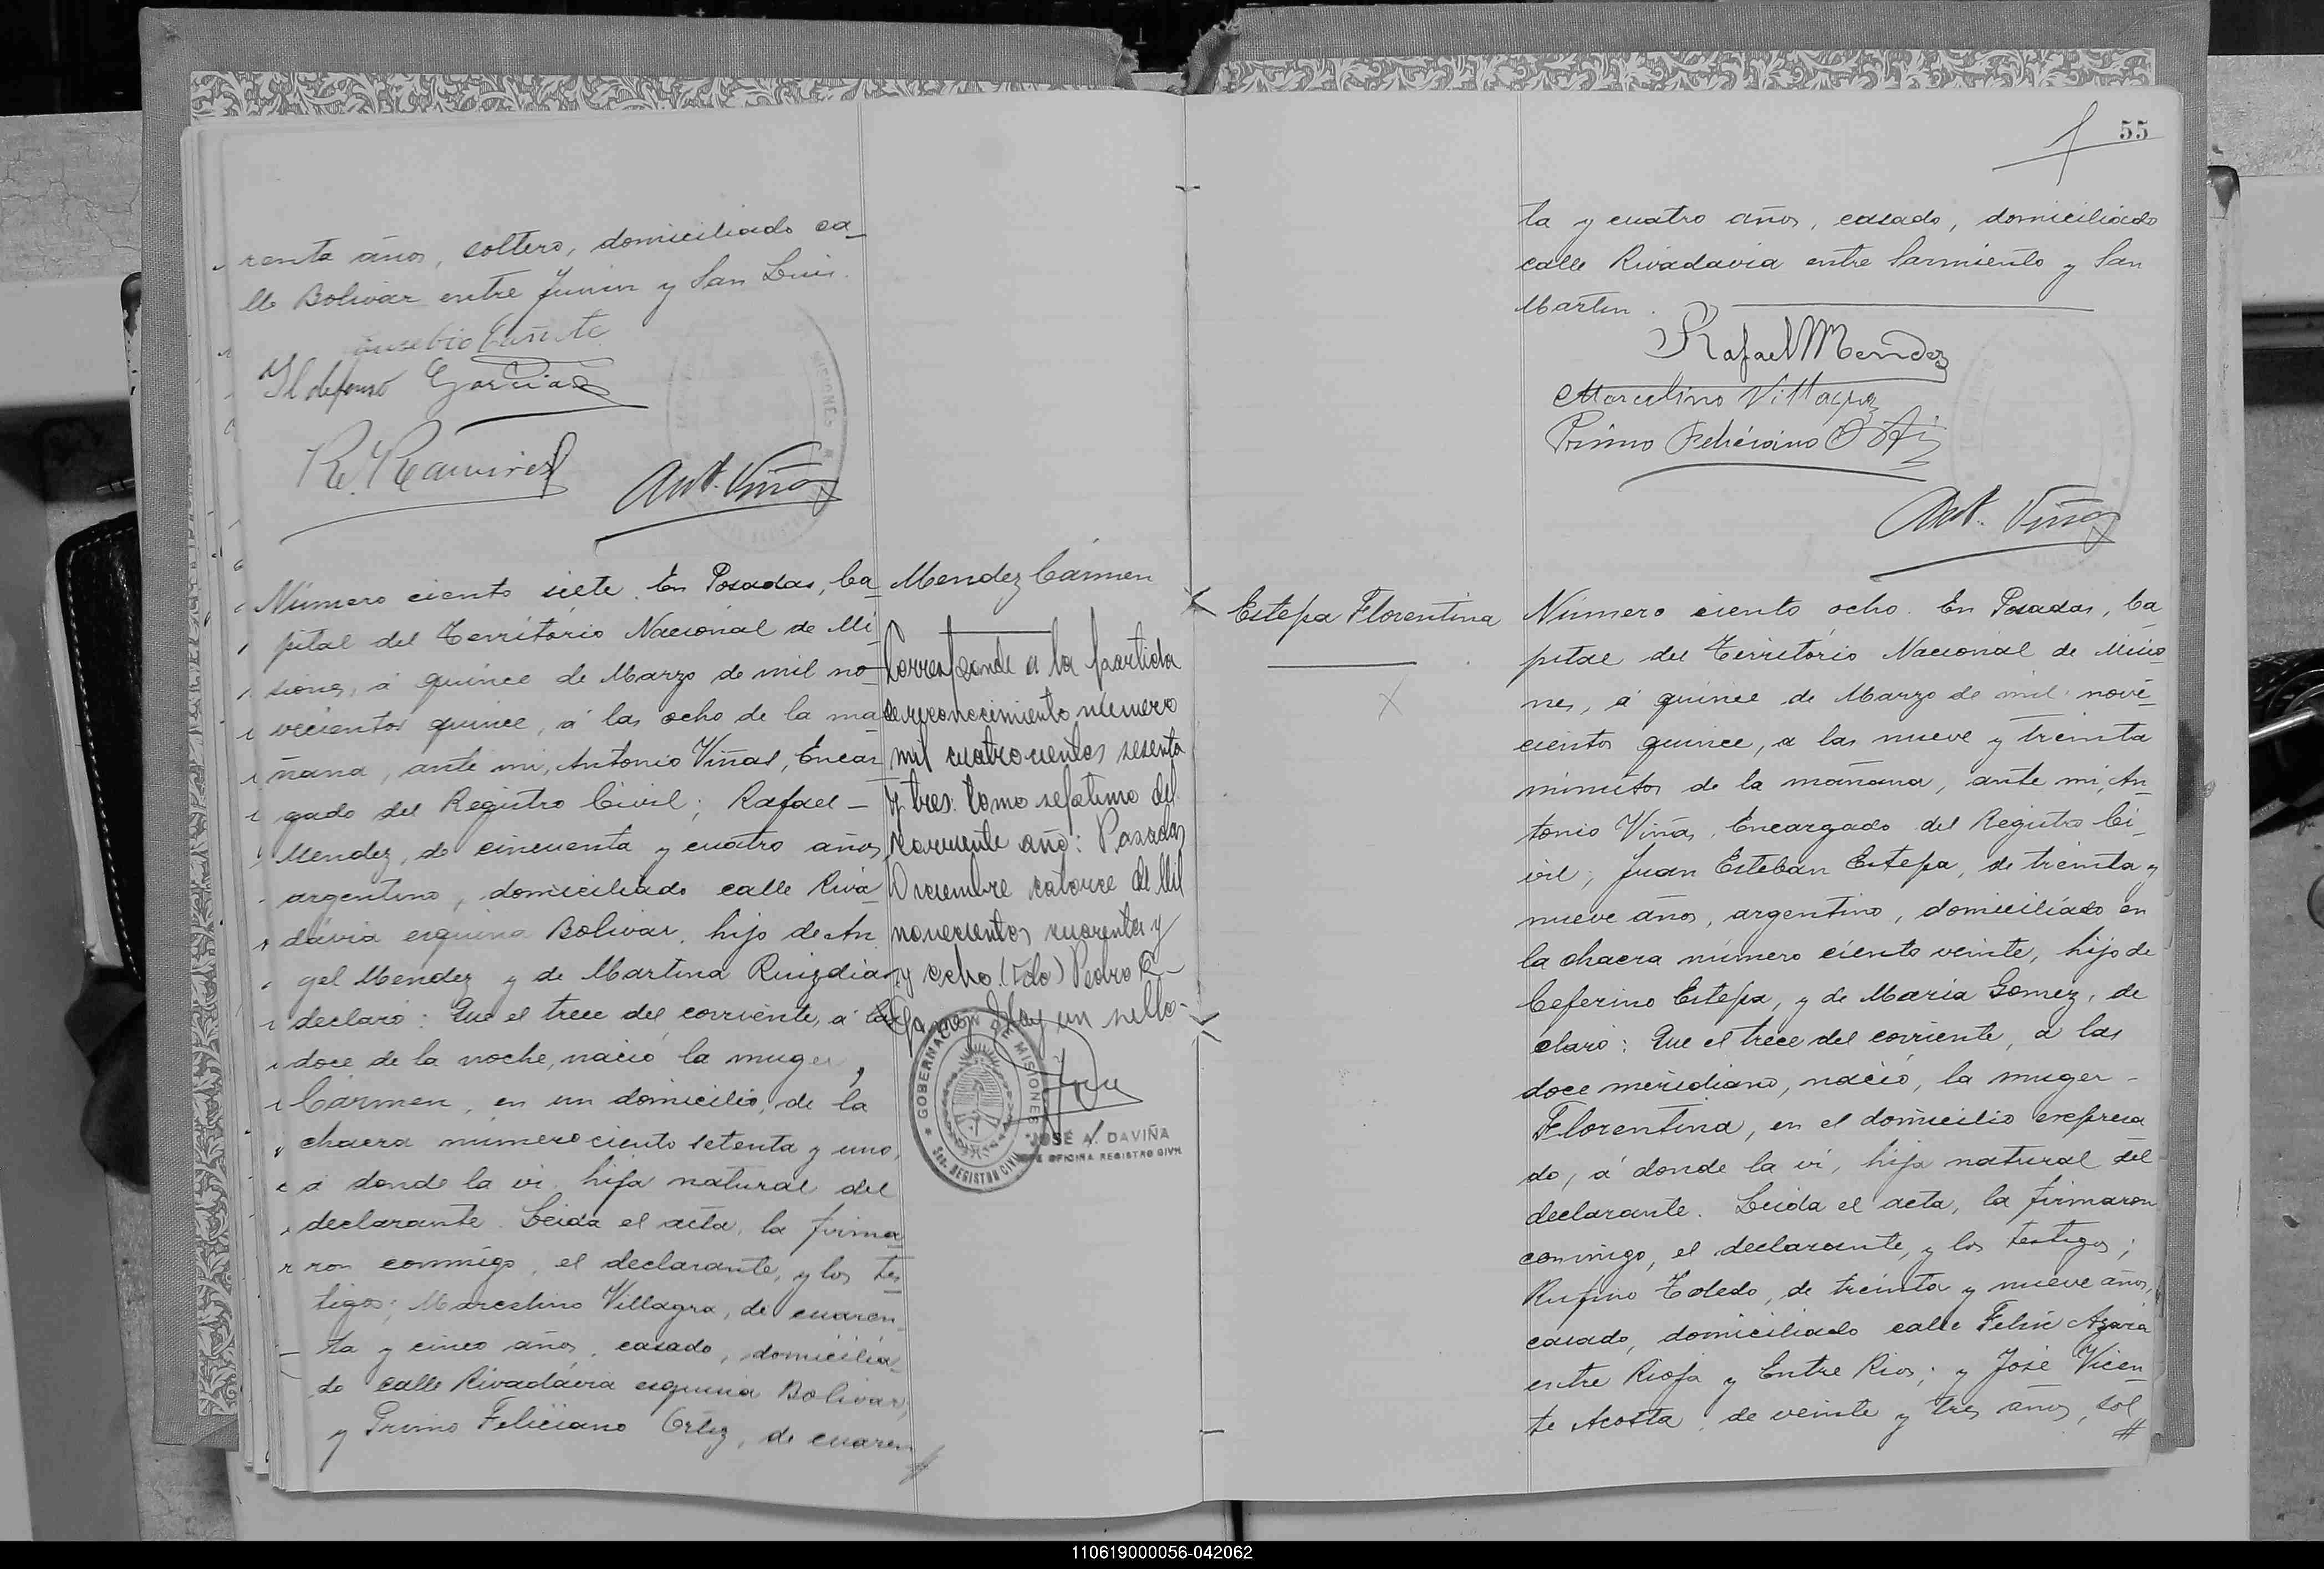 renta años, soltero, domiciliado ca_
lle Bolivar entre Junin y San Luis.
Eusebio Cañete
Ildefonso Garcia
R. Ramirez
Ant. Viñas
Número ciento siete. En Posadas, Ca_
pital del Territorio Nacional de Mi_
siones, á quince de Marzo de mil no_
vecientos quince, á las ocho de la ma_
ñana, ante mi, Antonio Viñas, Encar_
gado del Registro Civil; Rafael _
Mendez, de cincuenta y cuatro años,
argentino, domiciliado calle Riva_
davia esquina Bolivar, hijo de An_
gel Mendez y de Martina Ruizdias,
declaró: Que el trece del corriente, á las
doce de la noche, nació la muger,
Cármen, en un domicilio, de la
chacra número ciento setenta y uno,
á donde la vi, hija natural del
declarante. Leida el acta, la firma_
ron conmigo, el declarante, y los tes_
tigos; Marcelino Villagra, de cuaren_
ta y cinco años, casado, domicilia_
do calle Rivadavia esquina Bolivar,
y Primo Feliciano Ortiz, de cuaren
Mendez Cármen
Corresponde a la partida
de reconocimiento número
mil cuatrocientos sesenta
y tres: tomo septimo del
corriente año: Posadas
Diciembre catorce de Mil
novecientos cuarenta y
y ocho. (Fdo) Pedro
Hay un sello-
GOBERNACION DE MISIONES
REGISTRO CIVIL
JOSÉ A. DAVIÑA
JEFE OFICINA REGISTRO CIVIL
MISIONES
55
ta y cuatro años, casado, domiciliado
calle Rivadavia entre Sarmiento y San
Martin.
Rafael Mendez
Marcelino Villagra
Primo Feliciano Ortiz
Ant. Viñas
Estepa Florentina
X
Número ciento ocho. En Posadas, Ca_
pital del Territorio Nacional de Misio_
nes, á quince de Marzo de mil nove_
cientos quince, a las nueve y treinta
minutos de la mañana, ante mi, An_
tonio Viñas, Encargado del Registro Ci_
vil; Juan Esteban Estepa, de treinta y
nueve años, argentino, domiciliado en
la chacra número ciento veinte, hijo de
Ceferino Estepa, y de Maria Gomez, de
claró: Que el trece del corriente, a las
doce meridiano, nació, la muger -
Florentina, en el domicilio expresa
do, á donde la vi, hija natural del
declarante. Leida el acta, la firmaron
conmigo, el declarante, y los testigos;
Rufino Toledo, de treinta y nueve años,
casado, domiciliado calle Felix Azara
entre Rioja y Entre Rios; y José Vicen_
te Acosta, de veinte y tres años, sol
110619000056-042062